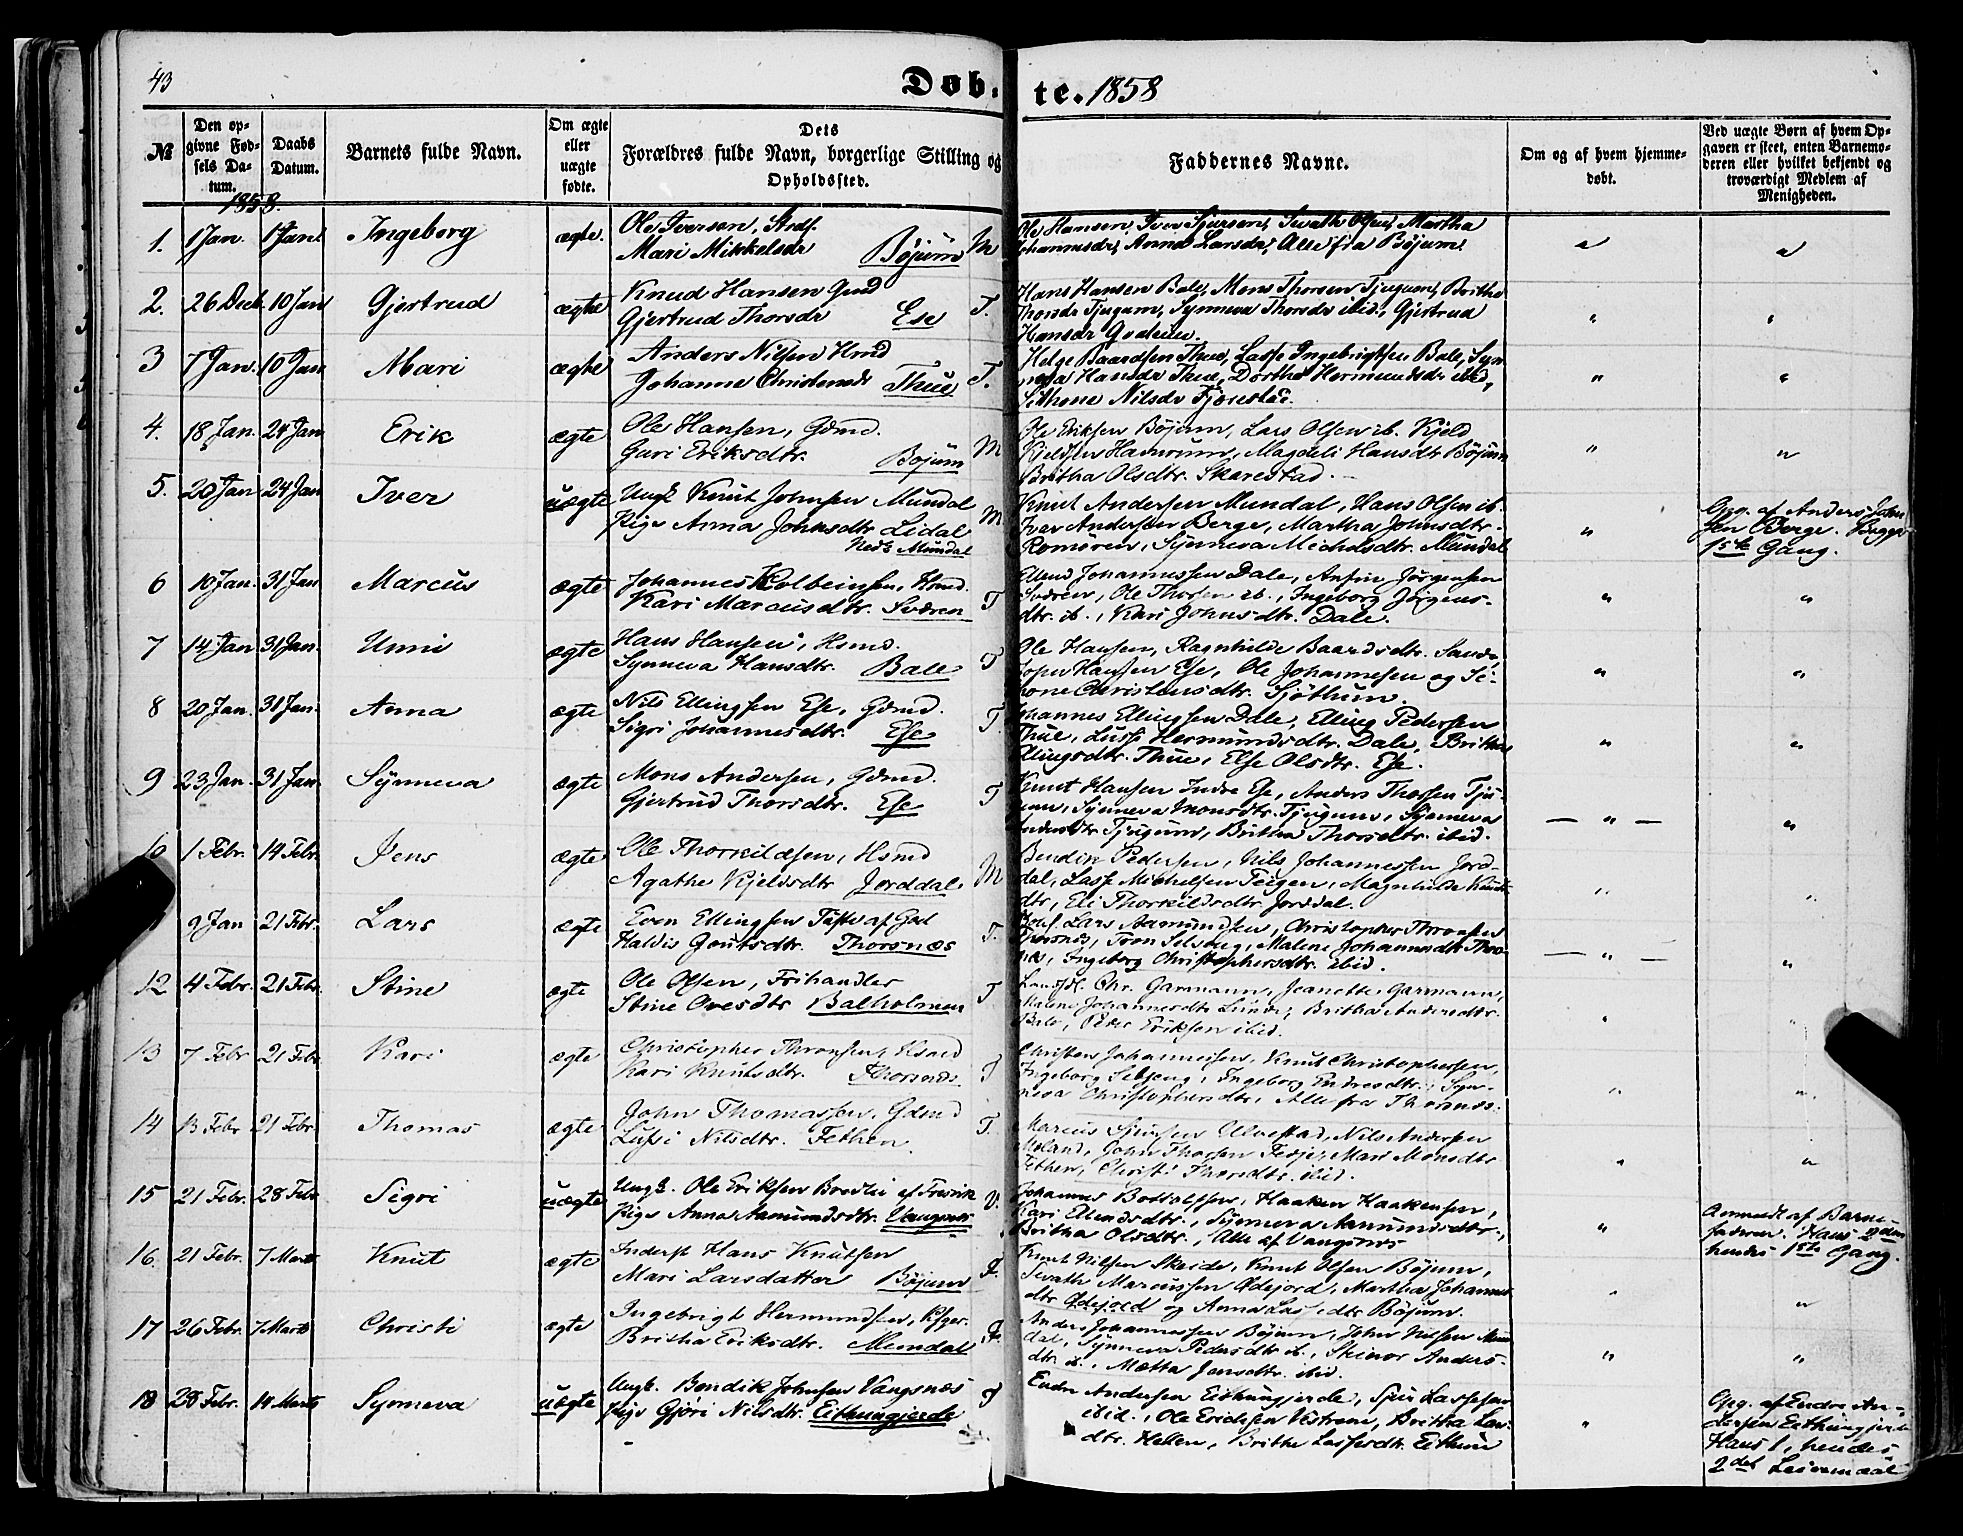 43
Døb.
te. 1858
№
Den op-
givne Fød-
sels Da-
tum.
Daabs
Datum.
Barnets fulde Navn.
Om ægte
eller
uægte
fødte.
Dets
Forældres fulde Navn, borgerlige Stilling og
Opholdssted.
Faddernes Navne.
Om og af hvem hjemme-
døbt.
Ved uægte Børn af hvem Op-
gaven er skeet, enten Barnemo-
deren eller hvilket bekjendt og
troværdigt Medlem af
Menigheden.
1858.
1. 1 Jan. 1 Jan. Ingeborg ægte. Ole Iversen,
Mari Mikkelsdr Bøjum M
Ole Hansen, Iver Sjursen, Sevath Olsen, Martha
Johannesdr, Anna Larsdr, Alle fra Bøjum
2. 26 Decb. 10 Jan Gjertrud ægte Knud Hansen Gmd
Gjertrud Thorsdr Ese T.
Hans Hansen Bale, Mons Thorsen Tjugum, Britha
Thorsdr Tjugum, Synneva Thorsdr ibid., Gjertrud
Hansdr
3 7 Jan. 10 Jan Mari ægte Anders Nilsen Hmd
Johanne Christensdr Thue T.
Helge Baardsen Thue, Lasse Ingebrigtsen Bale, Syn-
neva Hansdr Thue, Dorthe Hermundsdr ibid,
Sithone Nilsdr Fjærestad.
4. 18 Jan. 24 Jan Erik ægte Ole Hansen, Gdmd.
Guri Eriksdtr. Bøjum M
Ole Eriksen Bøjum, Lars Olsen ib. Kjeld
Kjeldsen Hamrum, Magdeli Hansdtr Bøjum
Britha Olsdtr. Skarestad.
5. 20 Jan 24 Jan Iver uægte Ungk. Knut Johnsen Mundal
Pige Anna Johnsdtr Lidal
Neds Mundal M
Knut Andersen Mundal, Hans Olsen ib.
Iver Andersen Berge, Martha Johnsdtr.
Romøren, Synneva Michelsdtr. Mundal
Opg. af Anders John
sen Berge. Begge
1ste Gang.
6 10 Jan. 31 Jan Marcus ægte Johannes Kolbeinsen, Hsmd.
Kari Marcusdtr. Sværen T
Ellend Johannessen Dale, Anfin Jørgensen
Sværen, Ole Thorsen ib., Ingeborg Jørgens-
dtr. ib., Kari Johnsdtr. Dale.
7 14 Jan 31 Jan. Unni ægte Hans Hansen, Hsmd.
Synneva Hansdtr. Bale T
Ole Hansen, Ragnhilde Baardsdtr. Sande,
Hansen Ese, Ole Johannesen og Si-
thone Christensdtr. Sjøthun.
8 20 Jan. 31 Jan. Anna ægte Nils Ellingsen Ese, Gdmd.
Sigri Johannesdtr. Ese T.
Johannes Ellingsen Dale, Elling Pedersen
Thue, Lussi Hermundsdtr. Dale, Britha
Ellingsdtr. Thue, Else Olsdtr. Ese.
9 23 Jan. 31 Jan. Synneva ægte Mons Andersen, Gdmd.
Gjertrud Thorsdtr. Ese T
Knut Hansen Indre Ese, Anders Thorsen Tju-
gum, Synneva Monsdtr. Tjugum, Synneva
Andersdtr Tjugum, Britha Thorsdtr. ibid.
10 1 Febr. 14 Febr. Jens ægte Ole Thorkildsen, Hsmd
Agathe Kjeldsdtr Jorddal M
Bendik Pedersen, Nils Johannessen Jord-
dal, Lasse Michelsen Teigen, Magnhilde Knuts
dtr, Eli Thorkildsdtr Jorddal.
9 Jan 21 Febr. Lars ægte Even Ellingsen
Haldis Gautsdtr. Thorsnæs T.
Lars Aamundsen, Christopher Thronsen
Thorsnæs, Tron Selseng, Malene Johannesdtr Thors
næs, Ingeborg Christophersdtr. ibid.
12 4 Febr. 21 Febr. Stine ægte Ole Olsen, Frihandler
Stine Ovesdtr Balholmen T
Chr. Garmann, Jeanette Garmann,
Malene Johannesdtr Lunde, Britha Andersdtr.
Bale, Peder Eriksen ibid.
13 7 Febr 21 Febr Kari ægte Christopher Thronsen, Hsmd
Kari Knutsdtr. Thorsnæs T
Christen Johannessen, Knut Christophersen,
Ingeborg Selseng, Ingeborg Endresdtr., Syn-
neva Christophersdtr, Alle fra Thorsnæs.
14 13 Febr 21 Febr Thomas ægte John Thomassen, Gdmd
Lussi Nilsdtr. Fethen. T.
Marcus Sjursen Ulvestad, Nils Andersen
Meland, John Thorsen Feije, Mari Monsdtr
Fethen, Christi Thorsdtr ibid.
15 21 Febr. 28 Febr Sigri uægte Ungk. Ole Eriksen af
Pige Anna Aamundsdtr. Vangsnæs V.
Johannes Bottolfsen, Haaken Haakensen,
Kari Ellendsdtr., Synneva Aamundsdtr.,
Britha Olsdtr., Alle af Vangsnæs
Anmeldt af Barne-
faderen. Hans 2den
hendes 1ste Gang.
16. 21 Febr. 7 Marts Knut ægte Inderst Hans Knutsen
Mari Larsdatter Bøjum F.
Knut Nilsen Skeide, Knut Olsen Bøjum,
Sevath Marcussen Ødejord, Martha Johannes
dtr Ødejord og Anna Lassesdtr Bøjum.
17 26 Febr. 7 Marts Christi ægte Ingebrigt Hermundsen,
Britha Eriksdtr. Mundal F.
Anders Johannessen Bøjum, John Nilsen Mun
dal, Synneva Pedersdtr ib., Skjnor Anders-
dtr ib., Mætta Jensdtr. ibid.
18 28 Febr. 14 Marts Synneva uægte Ungk. Bendik Johnsen Vangsnæs
Pige Gjøri Nilsdtr. Eithungjerde T
Endre Andersen Eithungjerde, Sjur Lassesen
ibid., Ole Ericksen Vestrem, Britha Lars
dtr. Hellen, Brithe Lassesdtr. Eithun
Opg. af Endre An-
dersen Eithungjerde
Hans 1, hendes
2det Leiermaal